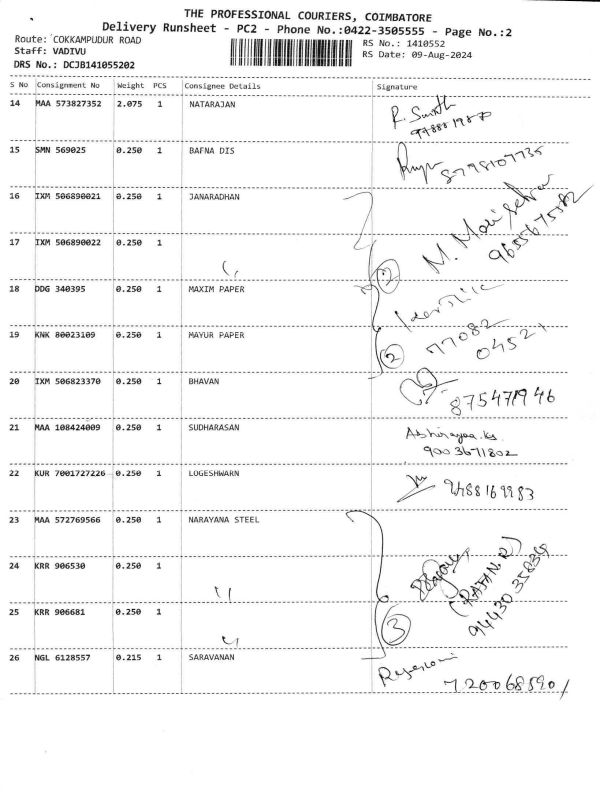 THE PROFESSIONAL COURIERS, COIMBATORE
Delivery Runsheet - PC2 - Phone No.:0422-3505555 - Page No.:2
Route: COKKAMPUDUR ROAD
RS No.: 1410552
Staff: VADIVU
RS Date: 09-Aug-2024
DRS No.: DCJB141055202
S No Consignment No Weight PCS Consignee Details Signature
14 MAA 573827352 2.075 1 NATARAJAN
15 SMN 569025 0.250 1 BAFNA DIS
8798107735
16 IXM 506890021 0.250 1 JANARADHAN
17 IXM 506890022 0.250 1 "
9655675382
18 DDG 340395 0.250 1 MAXIM PAPER
2
19 KNK 80023109 0.250 1 MAYUR PAPER
2
77082
04521
20 IXM 506823370 0.250 1 BHAVAN
875471946
21 MAA 108424009 0.250 1 SUDHARASAN
9003671802
22 KUR 7001727226 0.250 1 LOGESHWARN
9488169983
23 MAA 572769566 0.250 1 NARAYANA STEEL
24 KRR 906530 0.250 1 "
(RAJAN.R)
94430 35834
25 KRR 906681 0.250 1 "
3
26 NGL 6128557 0.215 1 SARAVANAN
7200685901